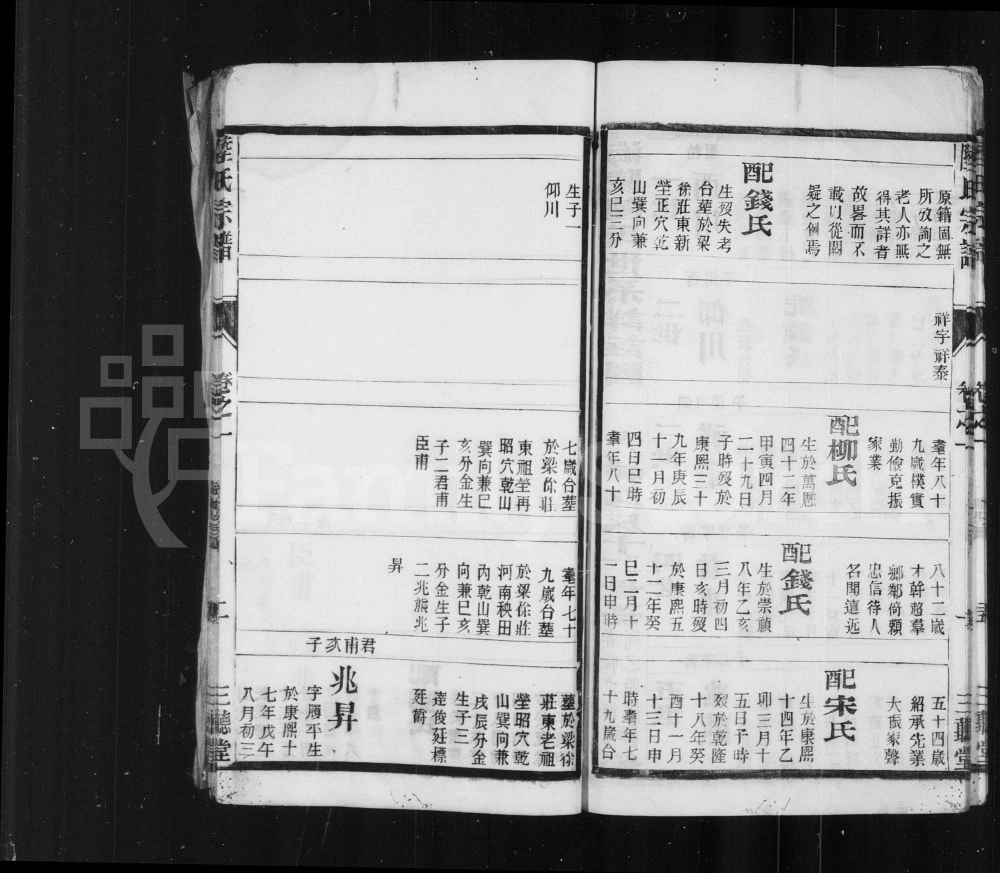 陸氏宗譜
卷之一
三聽堂
原籍固無
所攷詢之
老人亦無
得其詳者
故畧而不
載以從闕
疑之例焉
配錢氏
生歿失考
台塟於梁
徐莊東新
塋正穴乾
山巽向兼
亥巳三分
生子一
仰川
祥宇祥泰
耄年八十
九歲樸實
勤儉克振
家業
配柳氏
生於萬曆
四十二年
甲寅四月
二十九日
子時歿於
康熙三十
九年庚辰
十一月初
四日巳時
耄年八十
七歲台塟
於梁徐莊
東祖塋再
昭穴乾山
巽向兼巳
亥分金生
子二君甫
臣甫
八十二歲
才幹超羣
鄉鄰倚賴
忠信待人
名聞遠近
配錢氏
生於崇禎
八年乙亥
三月初四
日亥時歿
於康熙五
十二年癸
巳二月十
一日申時
耄年七十
九歲台塟
於梁徐莊
河南秧田
內乾山巽
向兼巳亥
分金生子
二兆熊兆
昇
五十四歲
紹承先業
大振家聲
配宋氏
生於康熙
十四年乙
卯三月十
五日子時
歿於乾隆
十八年癸
酉十一月
十三日申
時耄年七
十九歲台
塟於梁徐
莊東老祖
塋昭穴乾
山巽向兼
戌辰分金
生子三
逵俊廷標
廷爵
君甫次子
兆昇
字履平生
於康熙十
七年戊午
八月初三
陸氏宗譜
卷之一
二
三聽堂